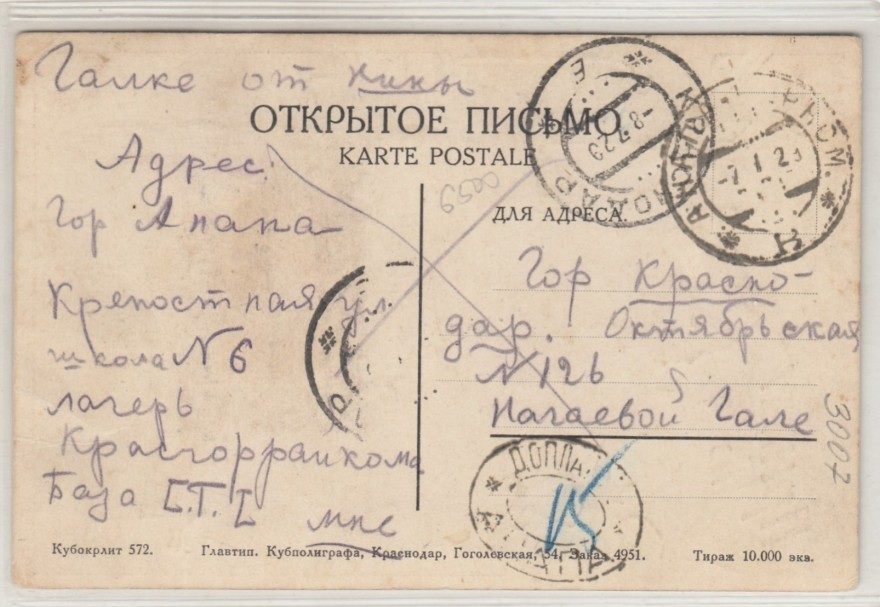 Галке от Кики
ОТКРЫТОЕ ПИСЬМО
KARTE POSTALE
Адрес
Гор Анапа
Крепостная ул
школа N 6
лагерь
Красгоррайкома
База
мне
0059
ДЛЯ АДРЕСА.
Гор Красно-
дар. Октябрьская
N 126
Нагаевой Гале
3007
КРАСНОДАР
-8.7.29
ДОПЛА
15
Кубокрлит 572. Главтип. Кубполиграфа, Краснодар, Гоголевская, 54, Заказ 4951. Тираж 10.000 экз.